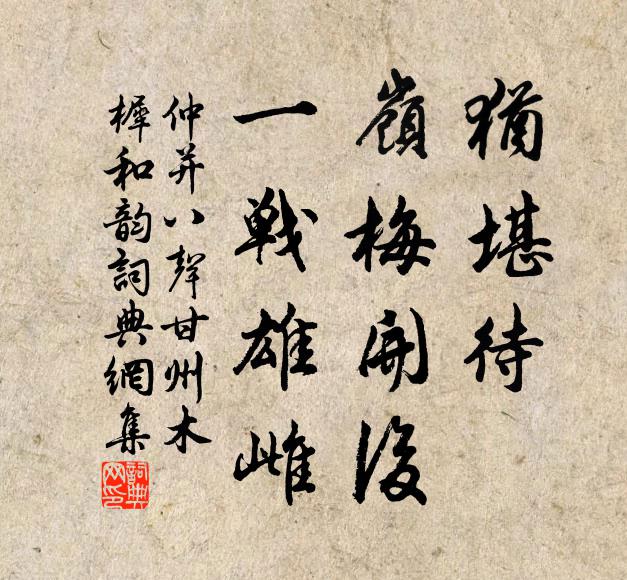 猶堪待
嶺梅開後
一戰雄雌
仲并八聲甘州木
樨和韵詞典網集
詞典
网印